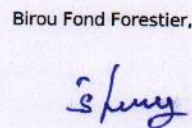 Birou Fond Forestier,